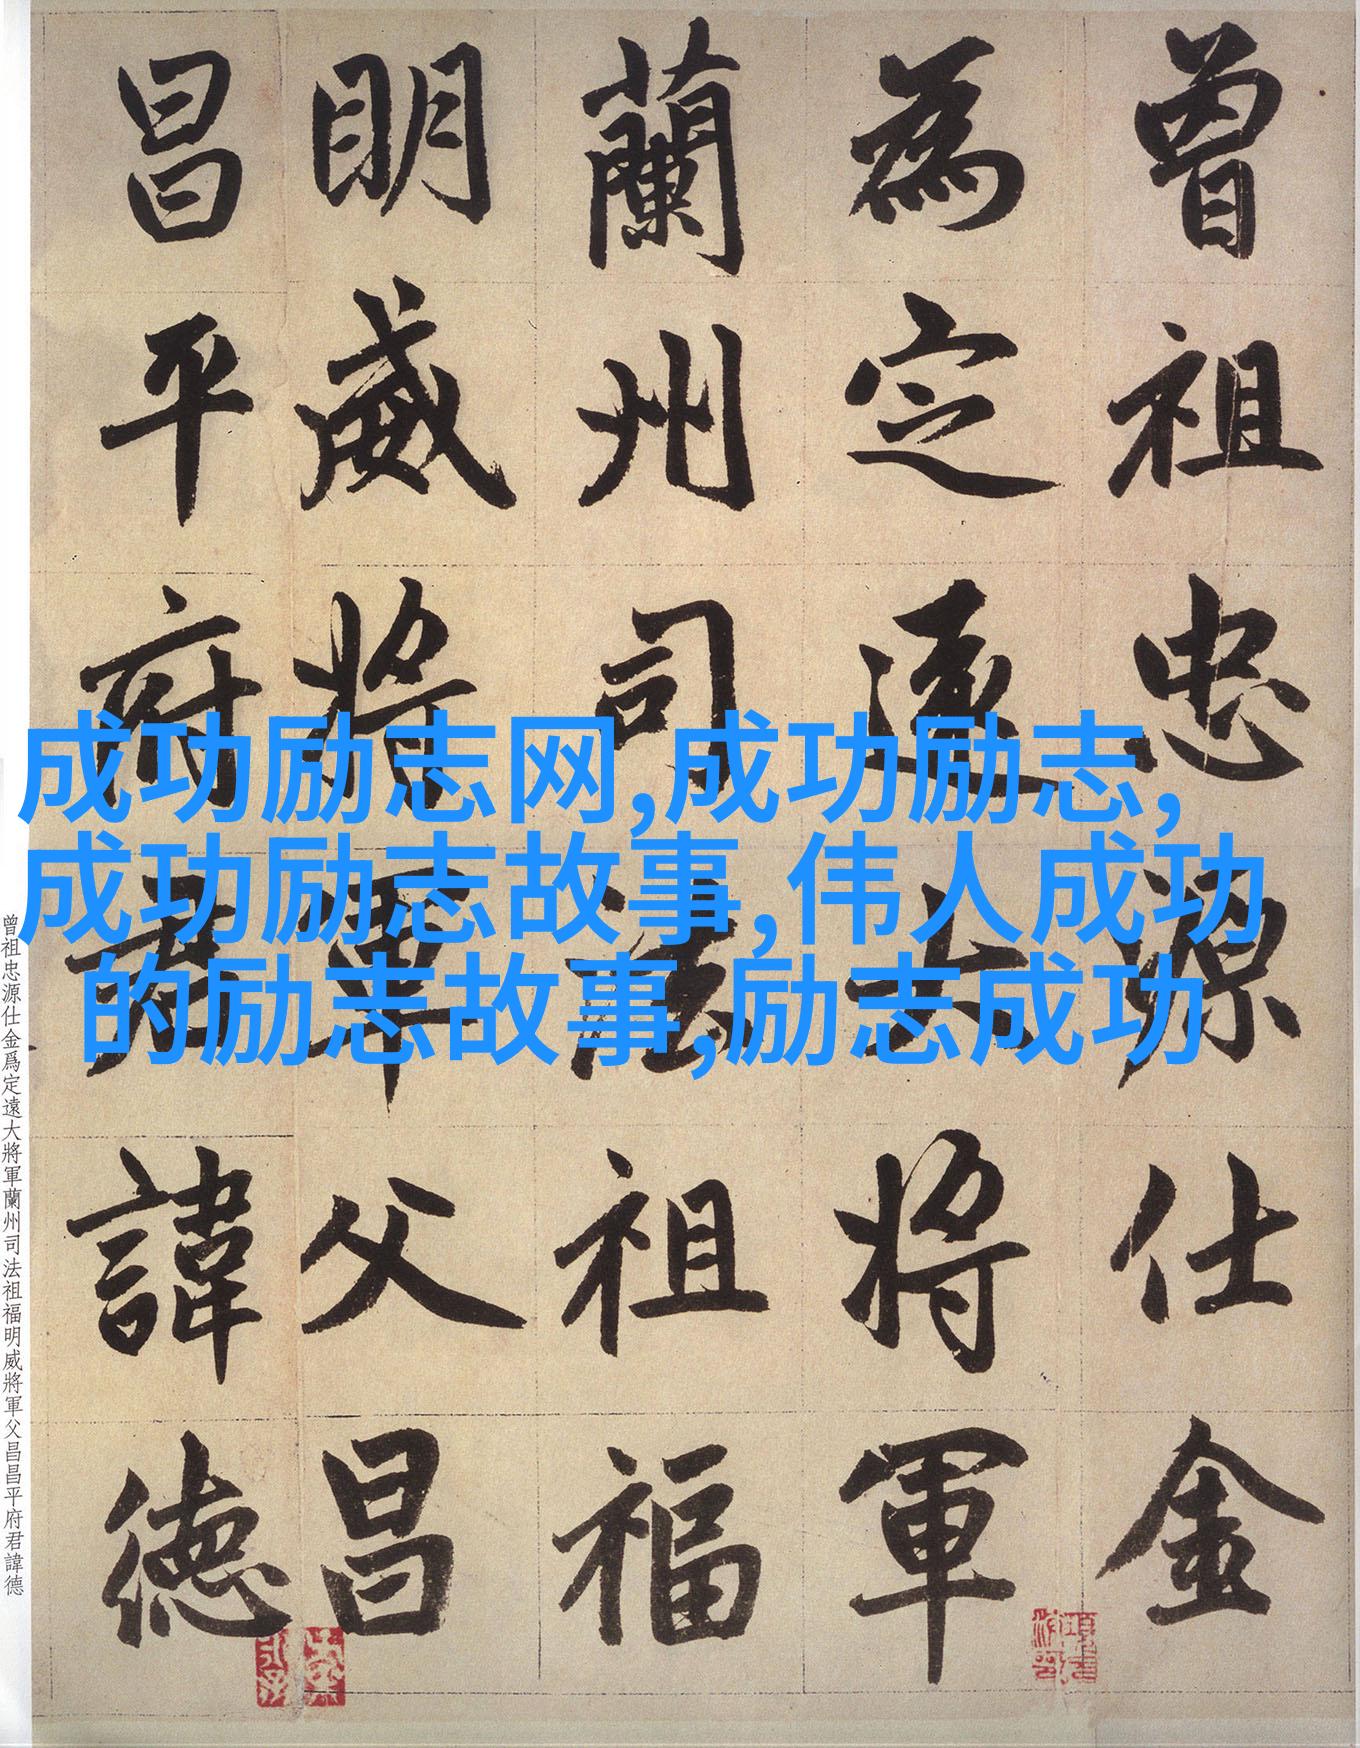 曾祖忠源仕金
為定遠大將軍
蘭州司法祖福
明威將軍父昌
昌平府君諱德
成功励志网,成功励志,
成功励志故事,伟人成功
的励志故事,励志成功
曾祖忠源仕金爲定遠大將軍蘭州司法祖福明威將軍父昌昌平府君諱德